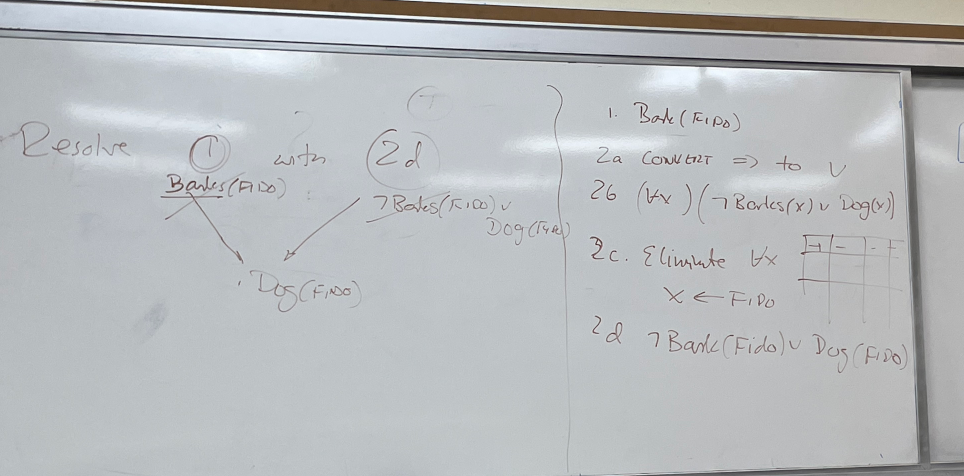 Resolve ① with 2d
Barks(FIDO)
¬Barks(FIDO) ∨
Dog(FIDO)
Dog(FIDO)
1. Bark(FIDO)
2a CONVERT => to ∨
2b (∀x)(¬Barks(x) ∨ Dog(x))
2c. Eliminate ∀x
x ← FIDO
2d ¬Bark(Fido) ∨ Dog(FIDO)